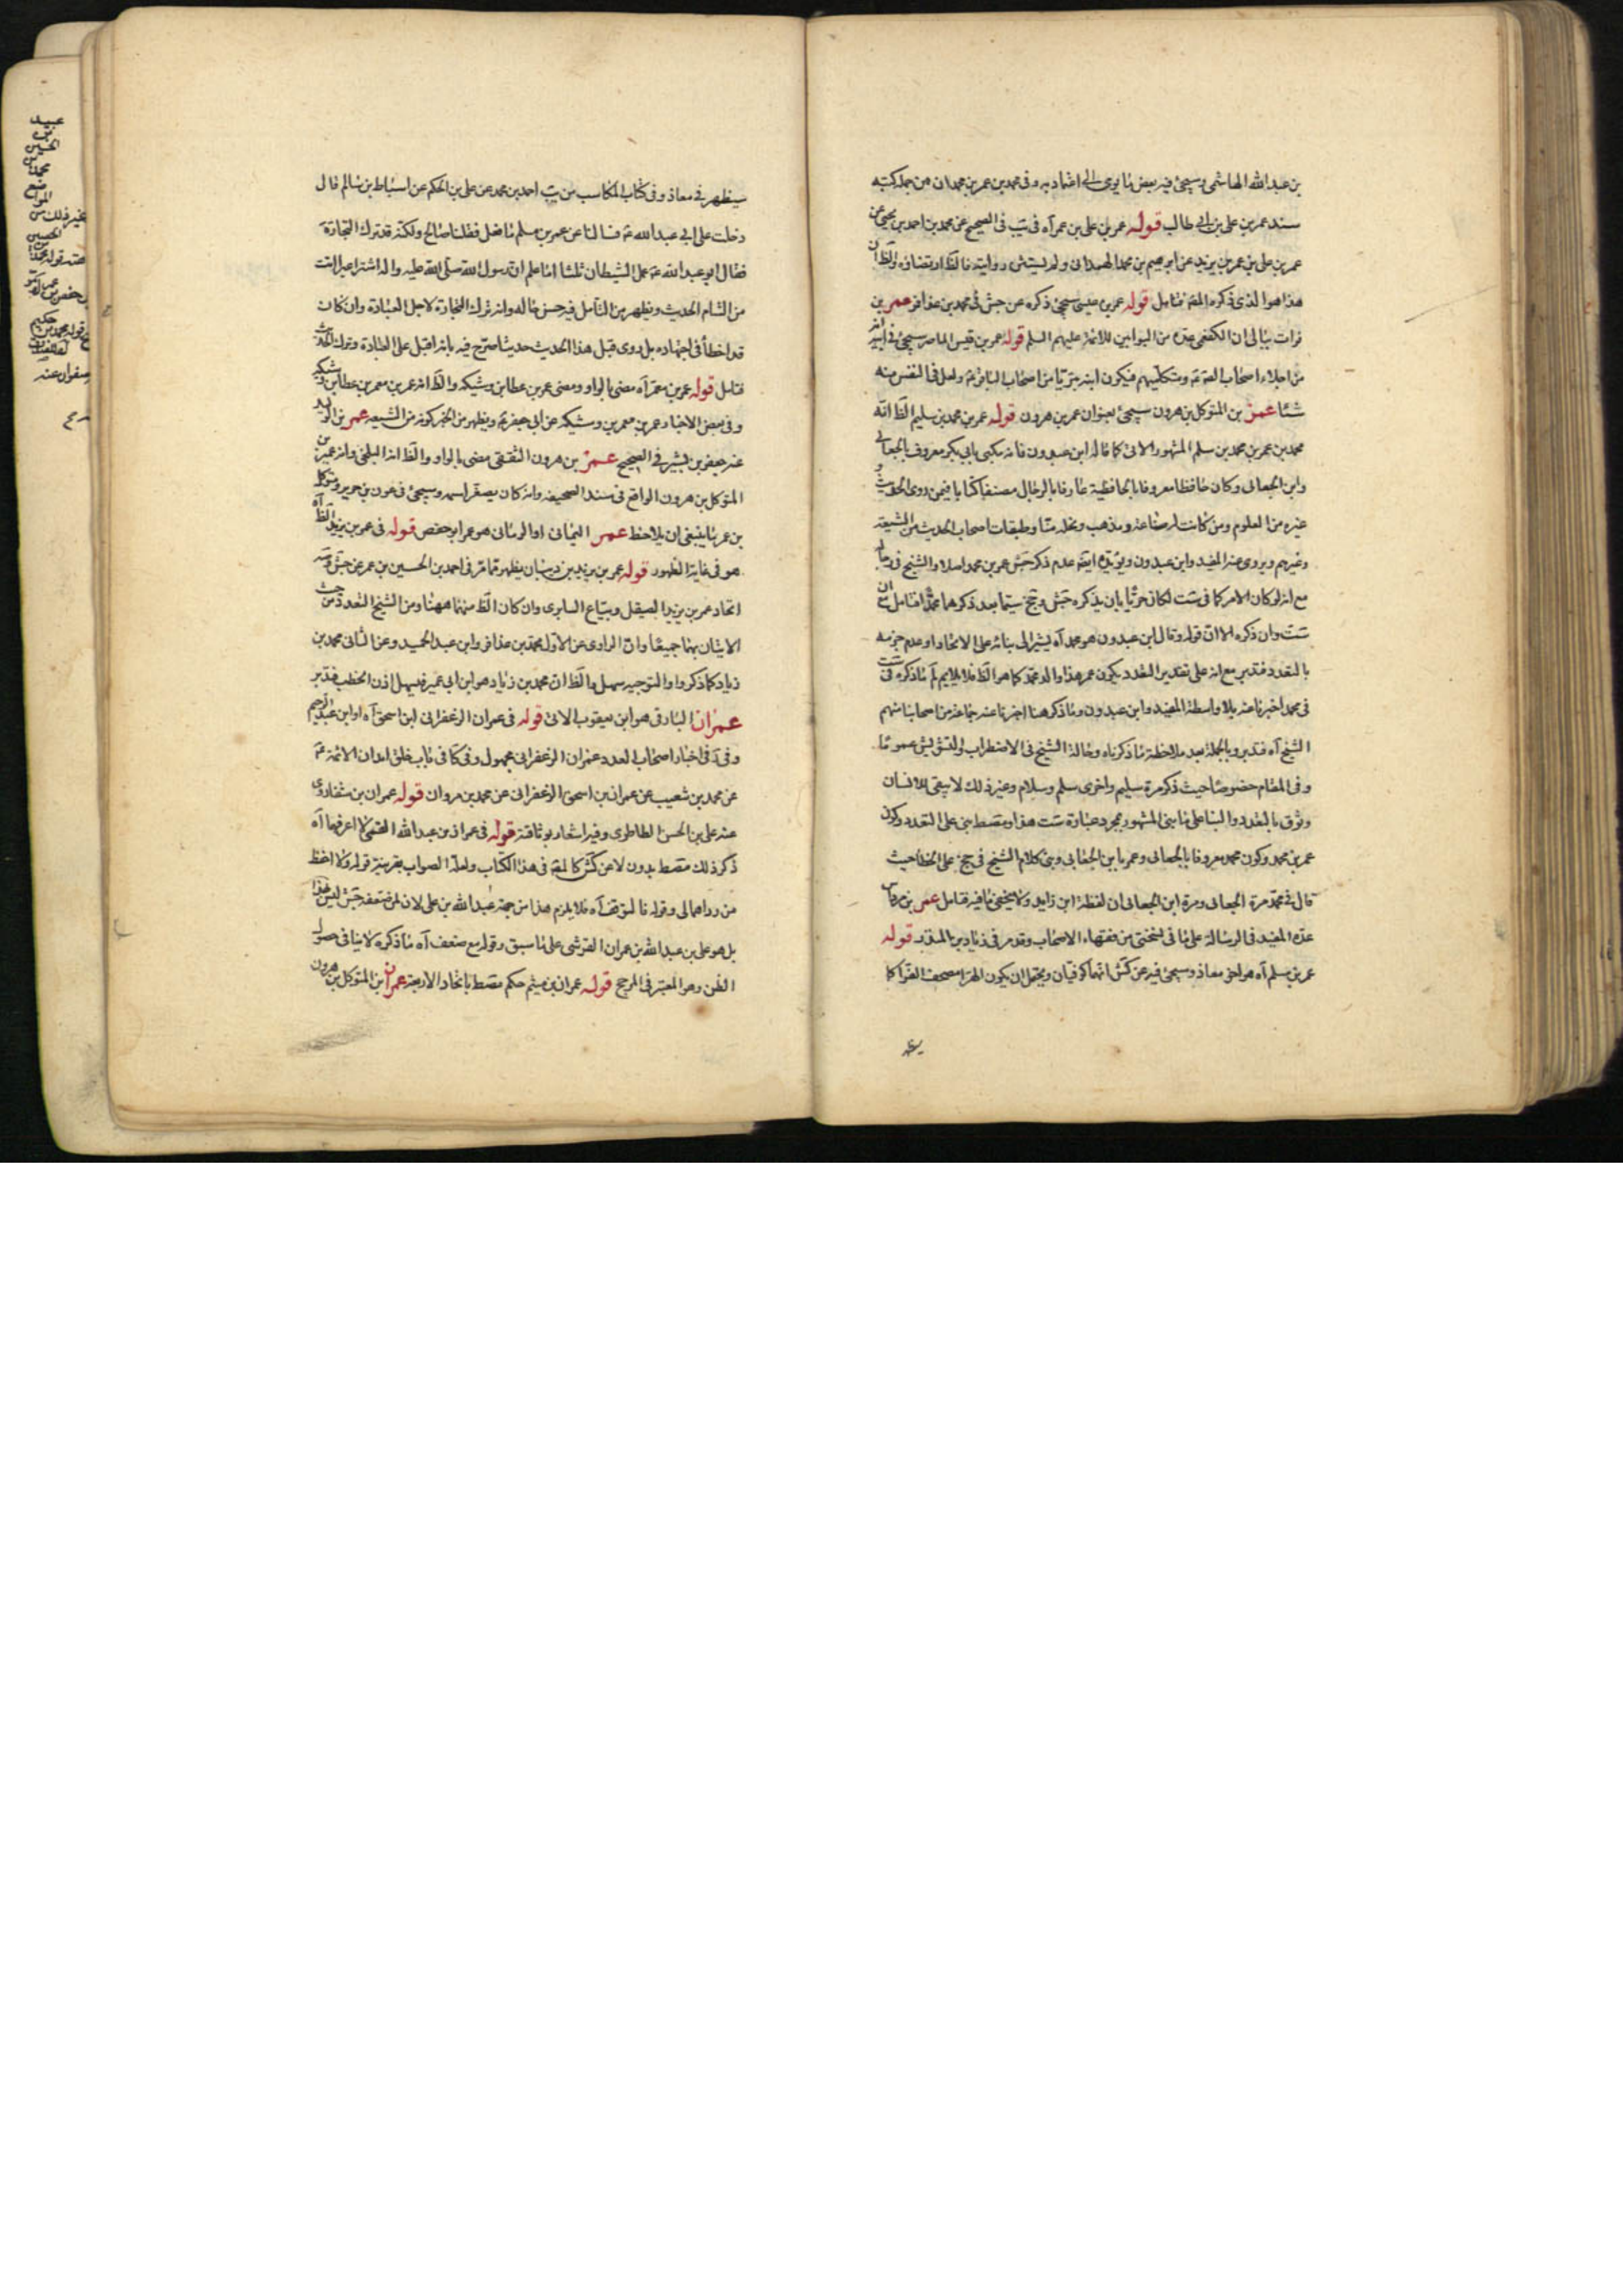 بن عبدالله الهاشمی وسیجئ فیه بعض ما یومی الی اعتماد به وفی محمد بن عمر بن محمدان من جملة کتبه
سند عمر بن علی بن ابی طالب قوله عمر بن علی بن عمر آه فی یب فی الصحیح عن محمد بن احمد بن یحیی عن
عمر بن علی بن عمر بن یزید عن ابرهیم بن محمد الهمدانی ولم یستثن روایته فالظ ارتضاؤه والظ ان
هذا هوا الذی ذکره المص فتامل قوله عمر بن عیسی سیجئ ذکره عن جش فی محمد بن عذافر عمر بن
فرات ببالی ان الکفعمی عده من البوابین للائمة علیهم السلم قوله عمر بن قیس الماصر سیجئ فی ابنه انه
من اجلاء اصحاب الص ع ومتکلمیهم فیکون ابنه بتریا من اصحاب الباقر ع ولعل فی النفس منه
شئا عمر بن المتوکل بن هرون سیجئ بعنوان عمر بن هرون قوله عمر بن محمد بن سلیم الظ انه
محمد بن عمر بن محمد بن سلم المشهور الاتی کما قاله ابن عبدون فانه یکنی بابی بکر معروف بالجعابی
وابن الجعابی وکان حافظا معروفا بالحافظیة عارفا بالرجال مصنفا کتابا فیمن روی الحدیث و
غیره من العلوم ومن کانت له صناعة ومذهب ونحلة منا وطبقات اصحاب الحدیث من الشیعة
وغیرهم ویروی عنه المفید وابن عبدون ویؤیده ایضه عدم ذکر جش عمر بن محمد اصلا والشیخ فی رجاله
مع انه لوکان الامر کما فی ست لکان حریا بان یذکره جش وجخ سیما بعد ذکرهما محمدا فتامل مع ان
ست وان ذکره الا ان قوله وقال ابن عبدون هو محمد آه یشیر الی بنائه علی الاتحاد او عدم جزمه
بالتعدد فتدبر مع انه علی تقدیر التعدد یکون عمر هذا والد محمد کما هو الظ فلا یلایم لم ما ذکره فی ست
فی محمد اخبرنا عنه بلا واسطة المفید وابن عبدون وما ذکر هنا اخبرنا عنه جماعة من اصحابنا منهم
الشیخ آه فتدبر وبالجملة بعد ملاحظة ما ذکرناه وحالة الشیخ فی الاضطراب والتشویش عموما
وفی المقام خصوصا حیث ذکر مرة سلیم واخری سلم وسلام وغیر ذلک لا یبقی للانسان
وثوق بالتعدد والبناء علی ما بنی المشهور بمجرد عبارة ست هذا ومقسط بنی علی التعدد وکون
عمر بن محمد وکون محمد معروفا بالجعابی وعمر بابن الجعابی وبنی کلام الشیخ فی جخ علی الخطأ حیث
قال فی محمد مرة الجعابی ومرة ابن الجعابی ان لفظة ابن زاید ولا یخفی ما فیه فتامل عمر بن مرداس
عده المفید فی الرسالة علی ما فی نسختی من فقهاء الاصحاب وقد مر فی زیاد بن المنذر قوله
عمر بن مسلم آه هو اخو معاذ وسیجئ فیه عن کش انهما کوفیان ویحتمل ان یکون الهرا مصحف الفرا کما
سیظهر فی معاذ وفی کتاب المکاسب من یب احمد بن محمد عن علی بن الحکم عن اسباط بن سالم قال
دخلت علی ابی عبدالله ع فسالنا عن عمر بن مسلم ما فعل فقلنا صالح ولکنه قد ترک التجارة
فقال ابو عبدالله ع عمل الشیطان ثلثا اما علم ان رسول الله صلی الله علیه واله اشتری عیرا اتت
من الشام الحدیث ویظهر من التامل فیه حسن حاله وانه ترک التجارة لاجل العبادة وان کان
قد اخطأ فی اجتهاده بل روی قبل هذا الحدیث حدیثا صرح فیه بانه اقبل علی العبادة وترک التجارة
فتامل قوله عمر بن معمر آه مضی بالواو ومضی عمر بن عطا بن وشیکه والظ انه عمر بن معمر بن عطا بن وشیکه
وفی بعض الاخبار عمر بن معمر بن وشیکه عن ابی جعفر ع ویظهر من الخبر کونه من الشیعه عمر بن الولید
عنه جعفر بن بشیر فی الصحیح عمر بن هرون الثقفی مضی بالواو والظ انه البلخی وانه غیر بن
المتوکل بن هرون الواقع فی سند الصحیفه وانه کان یصغر اسمه وسیجئ فی هون بن جریر ومتوکل
بن عمر ما ینبغی ان یلاحظ عمر الیمانی او الرمانی هو عمر ابو حفص قوله فی عمر بن یزید الظ آه
هو فی غایة الظهور قوله عمر بن یزید بن دبیان یظهر مما مر فی احمد بن الحسین بن عمر عن جش وست
اتحاد عمر بن یزید الصیقل وبیاع السابری وان کان الظ منهما ههنا ومن الشیخ التعدد من حیث
الاتیان بهما جمیعا وان الراوی عن الاول محمد بن عذافر وابن عبد الحمید وعن الثانی محمد بن
زیاد کما ذکروا والتوجیه سهل والظ ان محمد بن زیاد هو ابن ابی عمیر فیسهل اذن الخطب فتدبر
عمران البارقی هو ابن یعقوب الاتی قوله فی عمران الزعفرانی ابن اسحق آه او ابن عبدالرحیم
وفی آ فی اخبار اصحاب العدد عمران الزعفرانی مجهول وفی کا فی باب خلق ابدان الائمة ع
عن محمد بن شعیب عن عمران بن اسحق الزعفرانی عن محمد بن مروان قوله عمران بن شفا روی
عنه علی بن الحسن الطاطری وفیه اشعار بوثاقته قوله فی عمران بن عبدالله القمی لا اعرفهما آه
ذکر ذلک مقسط بدون لا عن کش کالمص فی هذا الکتاب ولعله الصواب بقرینة قوله ولا احفظ
من رواهما لی وقوله فالتوقف آه فلا یلزم هذا من جهة عبدالله بن علی لان لم ضعفه جش لیس هذا
بل هو علی بن عبدالله بن عمران القرشی علی ما سبق وقوله مع ضعف آه ما ذکره لا ینافی حصول
الظن وهو المعتبر فی المرجح قوله عمران بن میثم حکم مقسط باتحاد الاربعة عمران بن المتوکل بن هرون
عبید
بن
الحسین
محمد بن
المواضع
غیر ذلک من
الحسین
حکیم
صفوان عنه